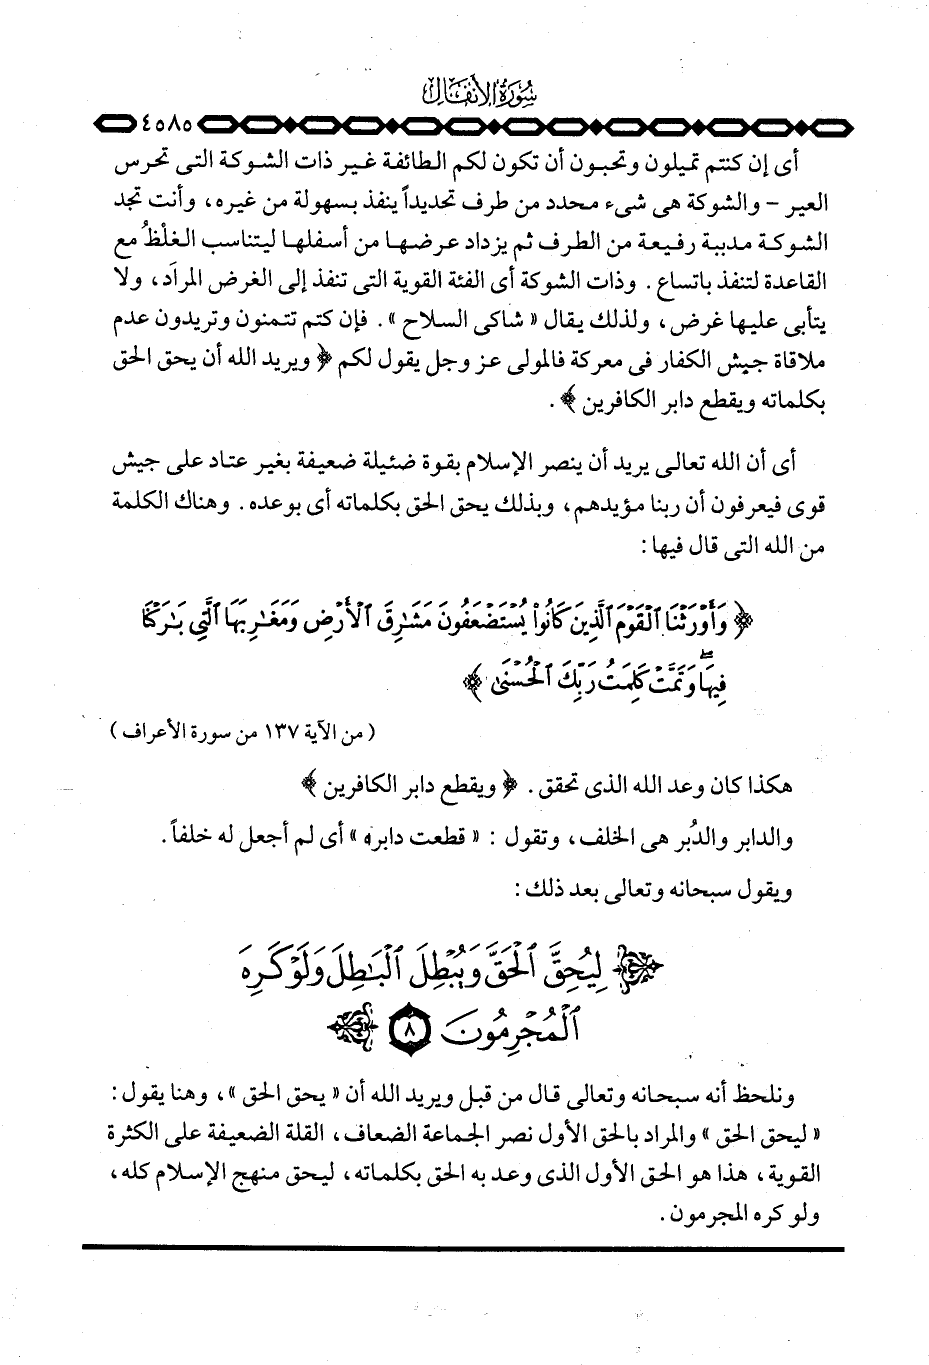 سُورَةُ الأَنفَال
٤٥٨٥
أى إن كنتم تميلون وتحبون أن تكون لكم الطائفة غير ذات الشوكة التى تحرس
العير – والشوكة هى شىء محدد من طرف تحديداً ينفذ بسهولة من غيره، وأنت تجد
الشوكة مدببة رفيعة من الطرف ثم يزداد عرضها من أسفلها ليتناسب الغلْظُ مع
القاعدة لتنفذ باتساع. وذات الشوكة أى الفئة القوية التى تنفذ إلى الغرض المراد، ولا
يتأبى عليها غرض، ولذلك يقال « شاكى السلاح ». فإن كتم تتمنون وتريدون عدم
ملاقاة جيش الكفار فى معركة فالمولى عز وجل يقول لكم ﴿ ويريد الله أن يحق الحق
بكلماته ويقطع دابر الكافرين ﴾.
أى أن الله تعالى يريد أن ينصر الإسلام بقوة ضئيلة ضعيفة بغير عتاد على جيش
قوى فيعرفون أن ربنا مؤيدهم، وبذلك يحق الحق بكلماته أى بوعده. وهناك الكلمة
من الله التى قال فيها:
﴿ وَأَوْرَثْنَا ٱلْقَوْمَ ٱلَّذِينَ كَانُوا۟ يُسْتَضْعَفُونَ مَشَـٰرِقَ ٱلْأَرْضِ وَمَغَـٰرِبَهَا ٱلَّتِى بَـٰرَكْنَا
فِيهَا ۖ وَتَمَّتْ كَلِمَتُ رَبِّكَ ٱلْحُسْنَىٰ ﴾
( من الآية ١٣٧ من سورة الأعراف )
هكذا كان وعد الله الذى تحقق. ﴿ ويقطع دابر الكافرين ﴾
والدابر والدُبر هى الخلف، وتقول : « قطعت دابره » أى لم أجعل له خلفاً.
ويقول سبحانه وتعالى بعد ذلك :
﴿ لِيُحِقَّ ٱلْحَقَّ وَيُبْطِلَ ٱلْبَـٰطِلَ وَلَوْ كَرِهَ
ٱلْمُجْرِمُونَ ٨ ﴾
ونلحظ أنه سبحانه وتعالى قال من قبل ويريد الله أن « يحق الحق »، وهنا يقول :
« ليحق الحق » والمراد بالحق الأول نصر الجماعة الضعاف، القلة الضعيفة على الكثرة
القوية، هذا هو الحق الأول الذى وعد به الحق بكلماته، ليحق منهج الإسلام كله،
ولو كره المجرمون.